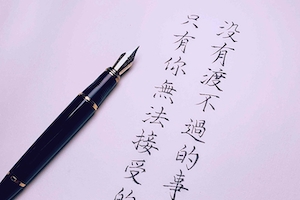 没有渡不過的事
只有你無法接受的